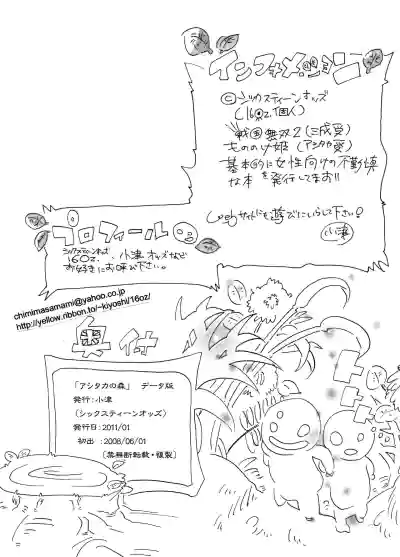 インフォメーション
©シックスティーンオッズ
(16oz.個人)
戦国無双2(三成愛)
もののけ姫(アシタカ愛)
基本的に女性向けの不動壊
な本を発行してます!!
Webサイトにも遊びにいらして下さい!
小津
プロフィール
シックスティーンオッズ
16oz. 小津 オッズなど
お好きにお呼び下さい。
chimimasamami@yahoo.co.jp
http://yellow.ribbon.to/~kiyoshi/16oz/
奥付
「アシタカの森」 データ版
発行:小津
(シックスティーンオッズ)
発行日:2011/01
初出 :2008/06/01
〔禁無断転載・複製〕